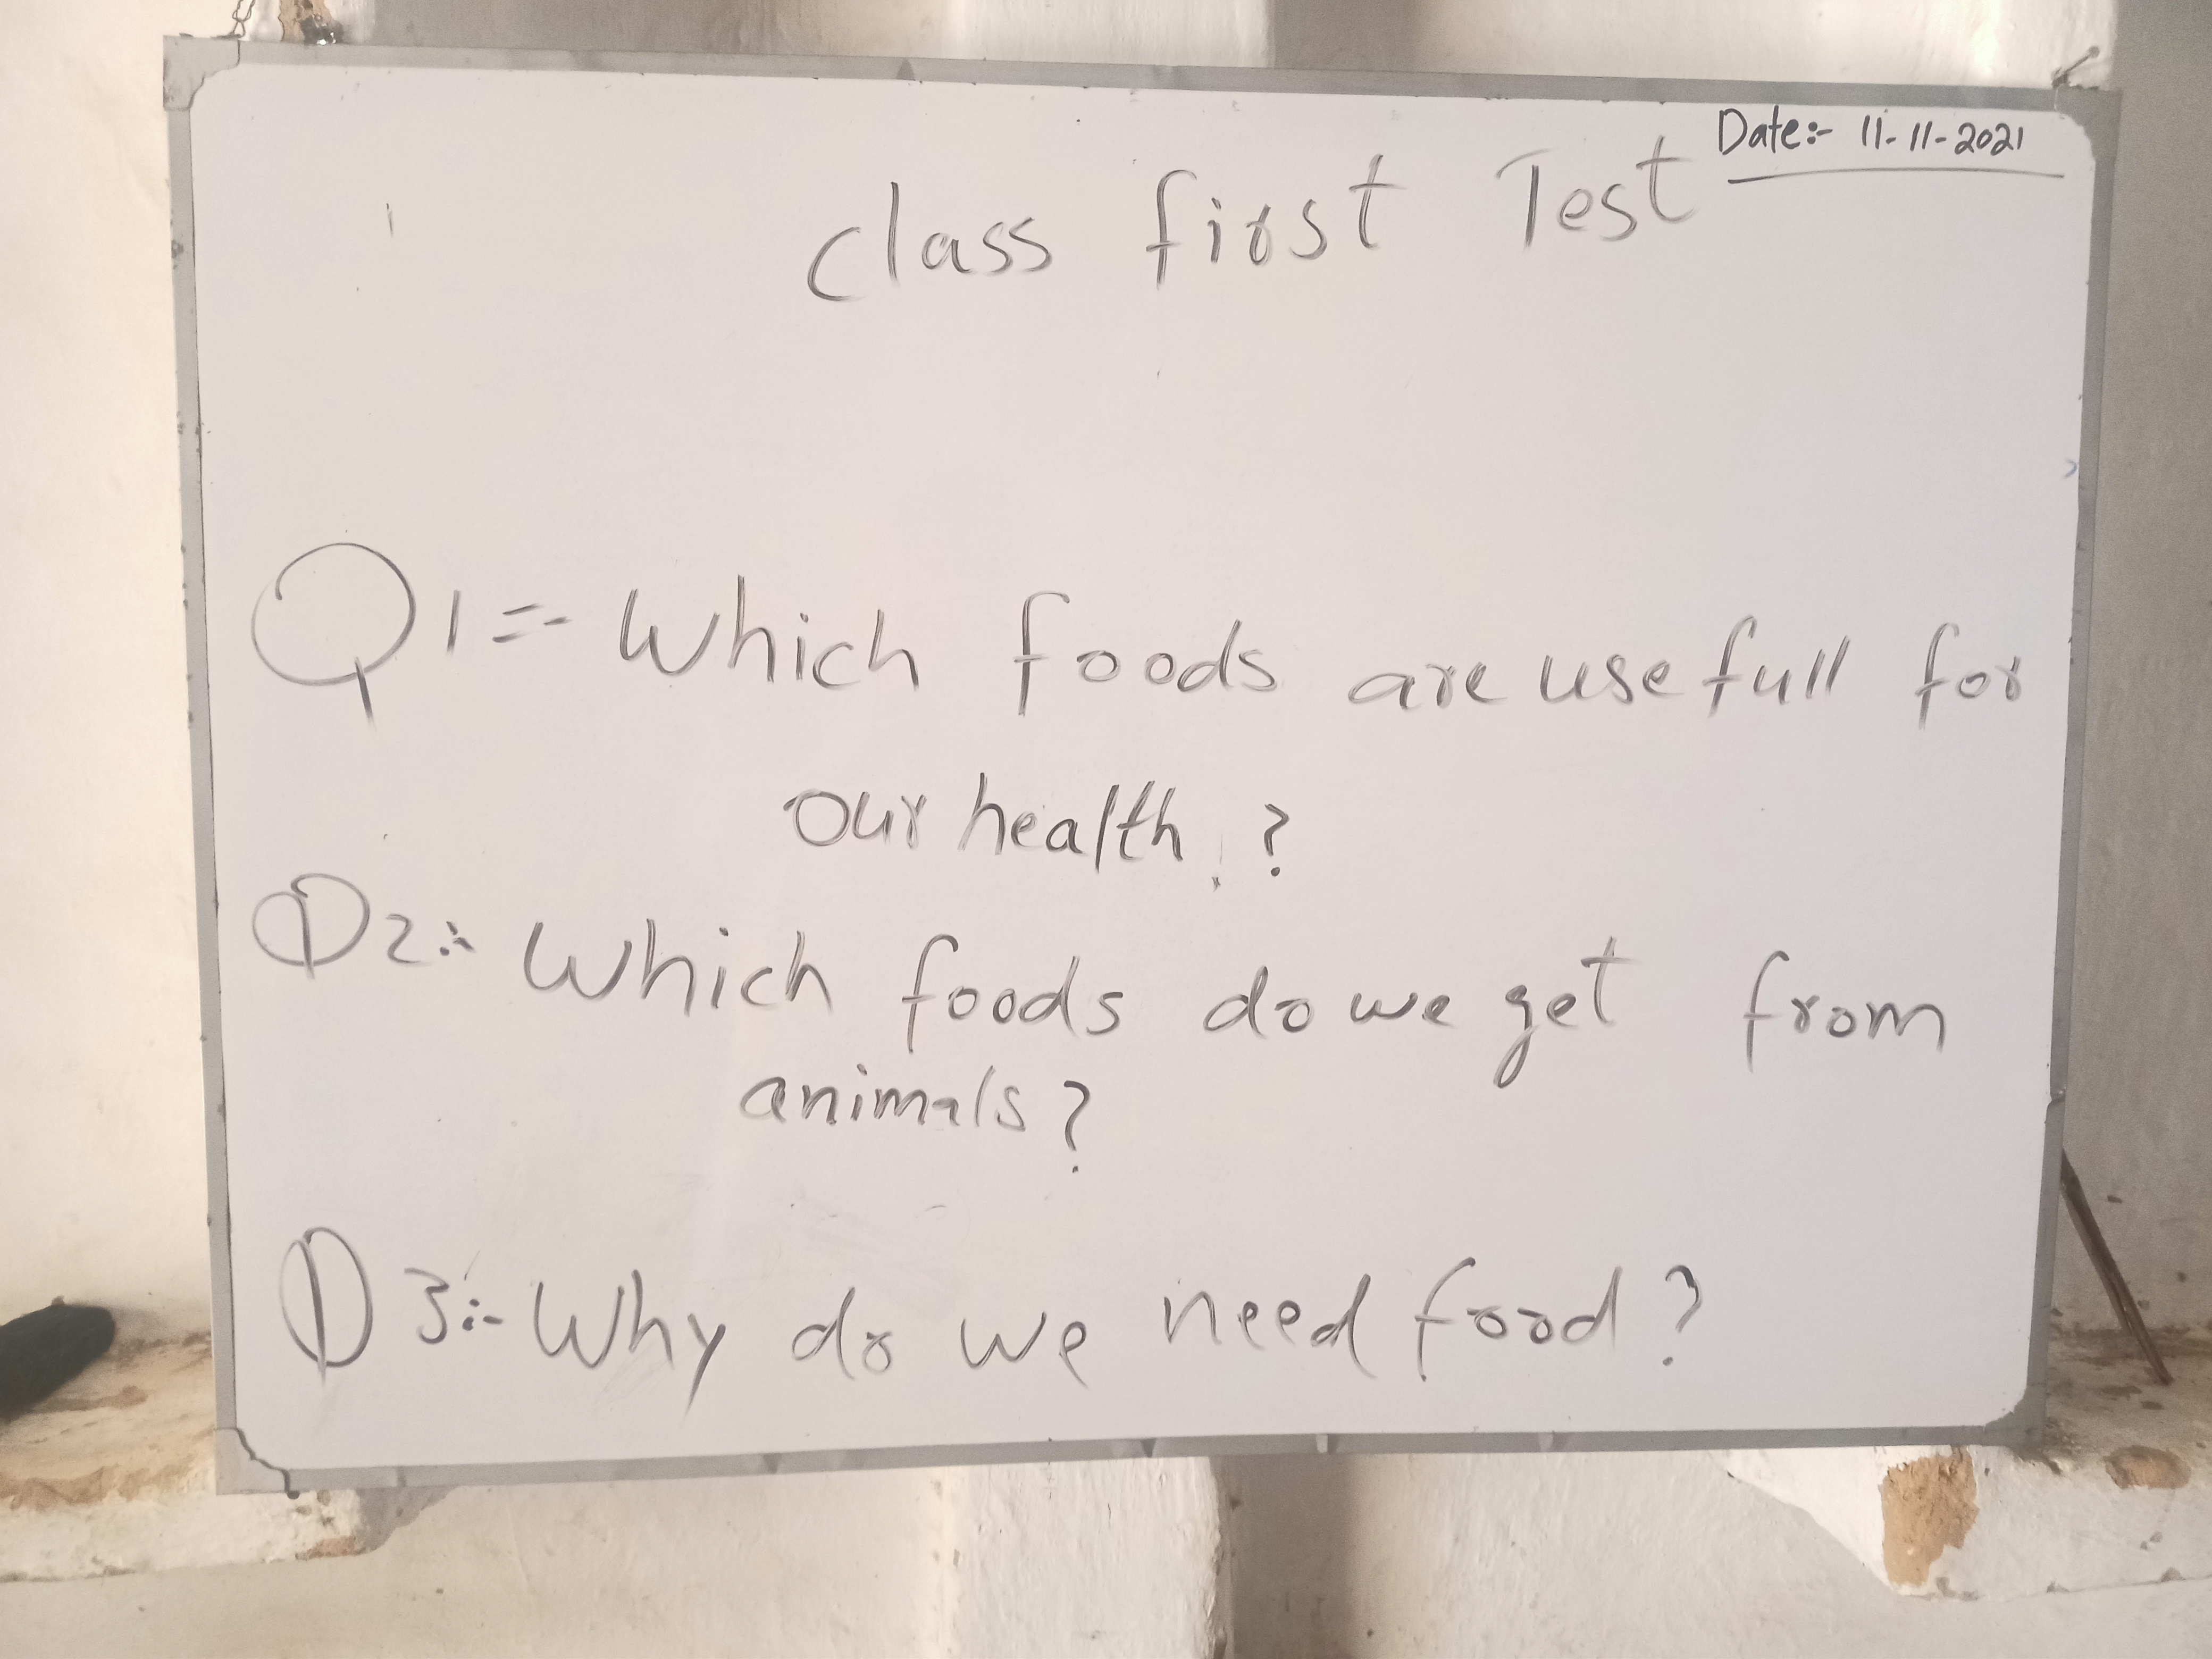 Date:- 11-11-2021
Class first Test
Q1=- Which foods are usefull for
our health ?
Q2:- Which foods do we get from
animals?
Q3:- Why do we need food?